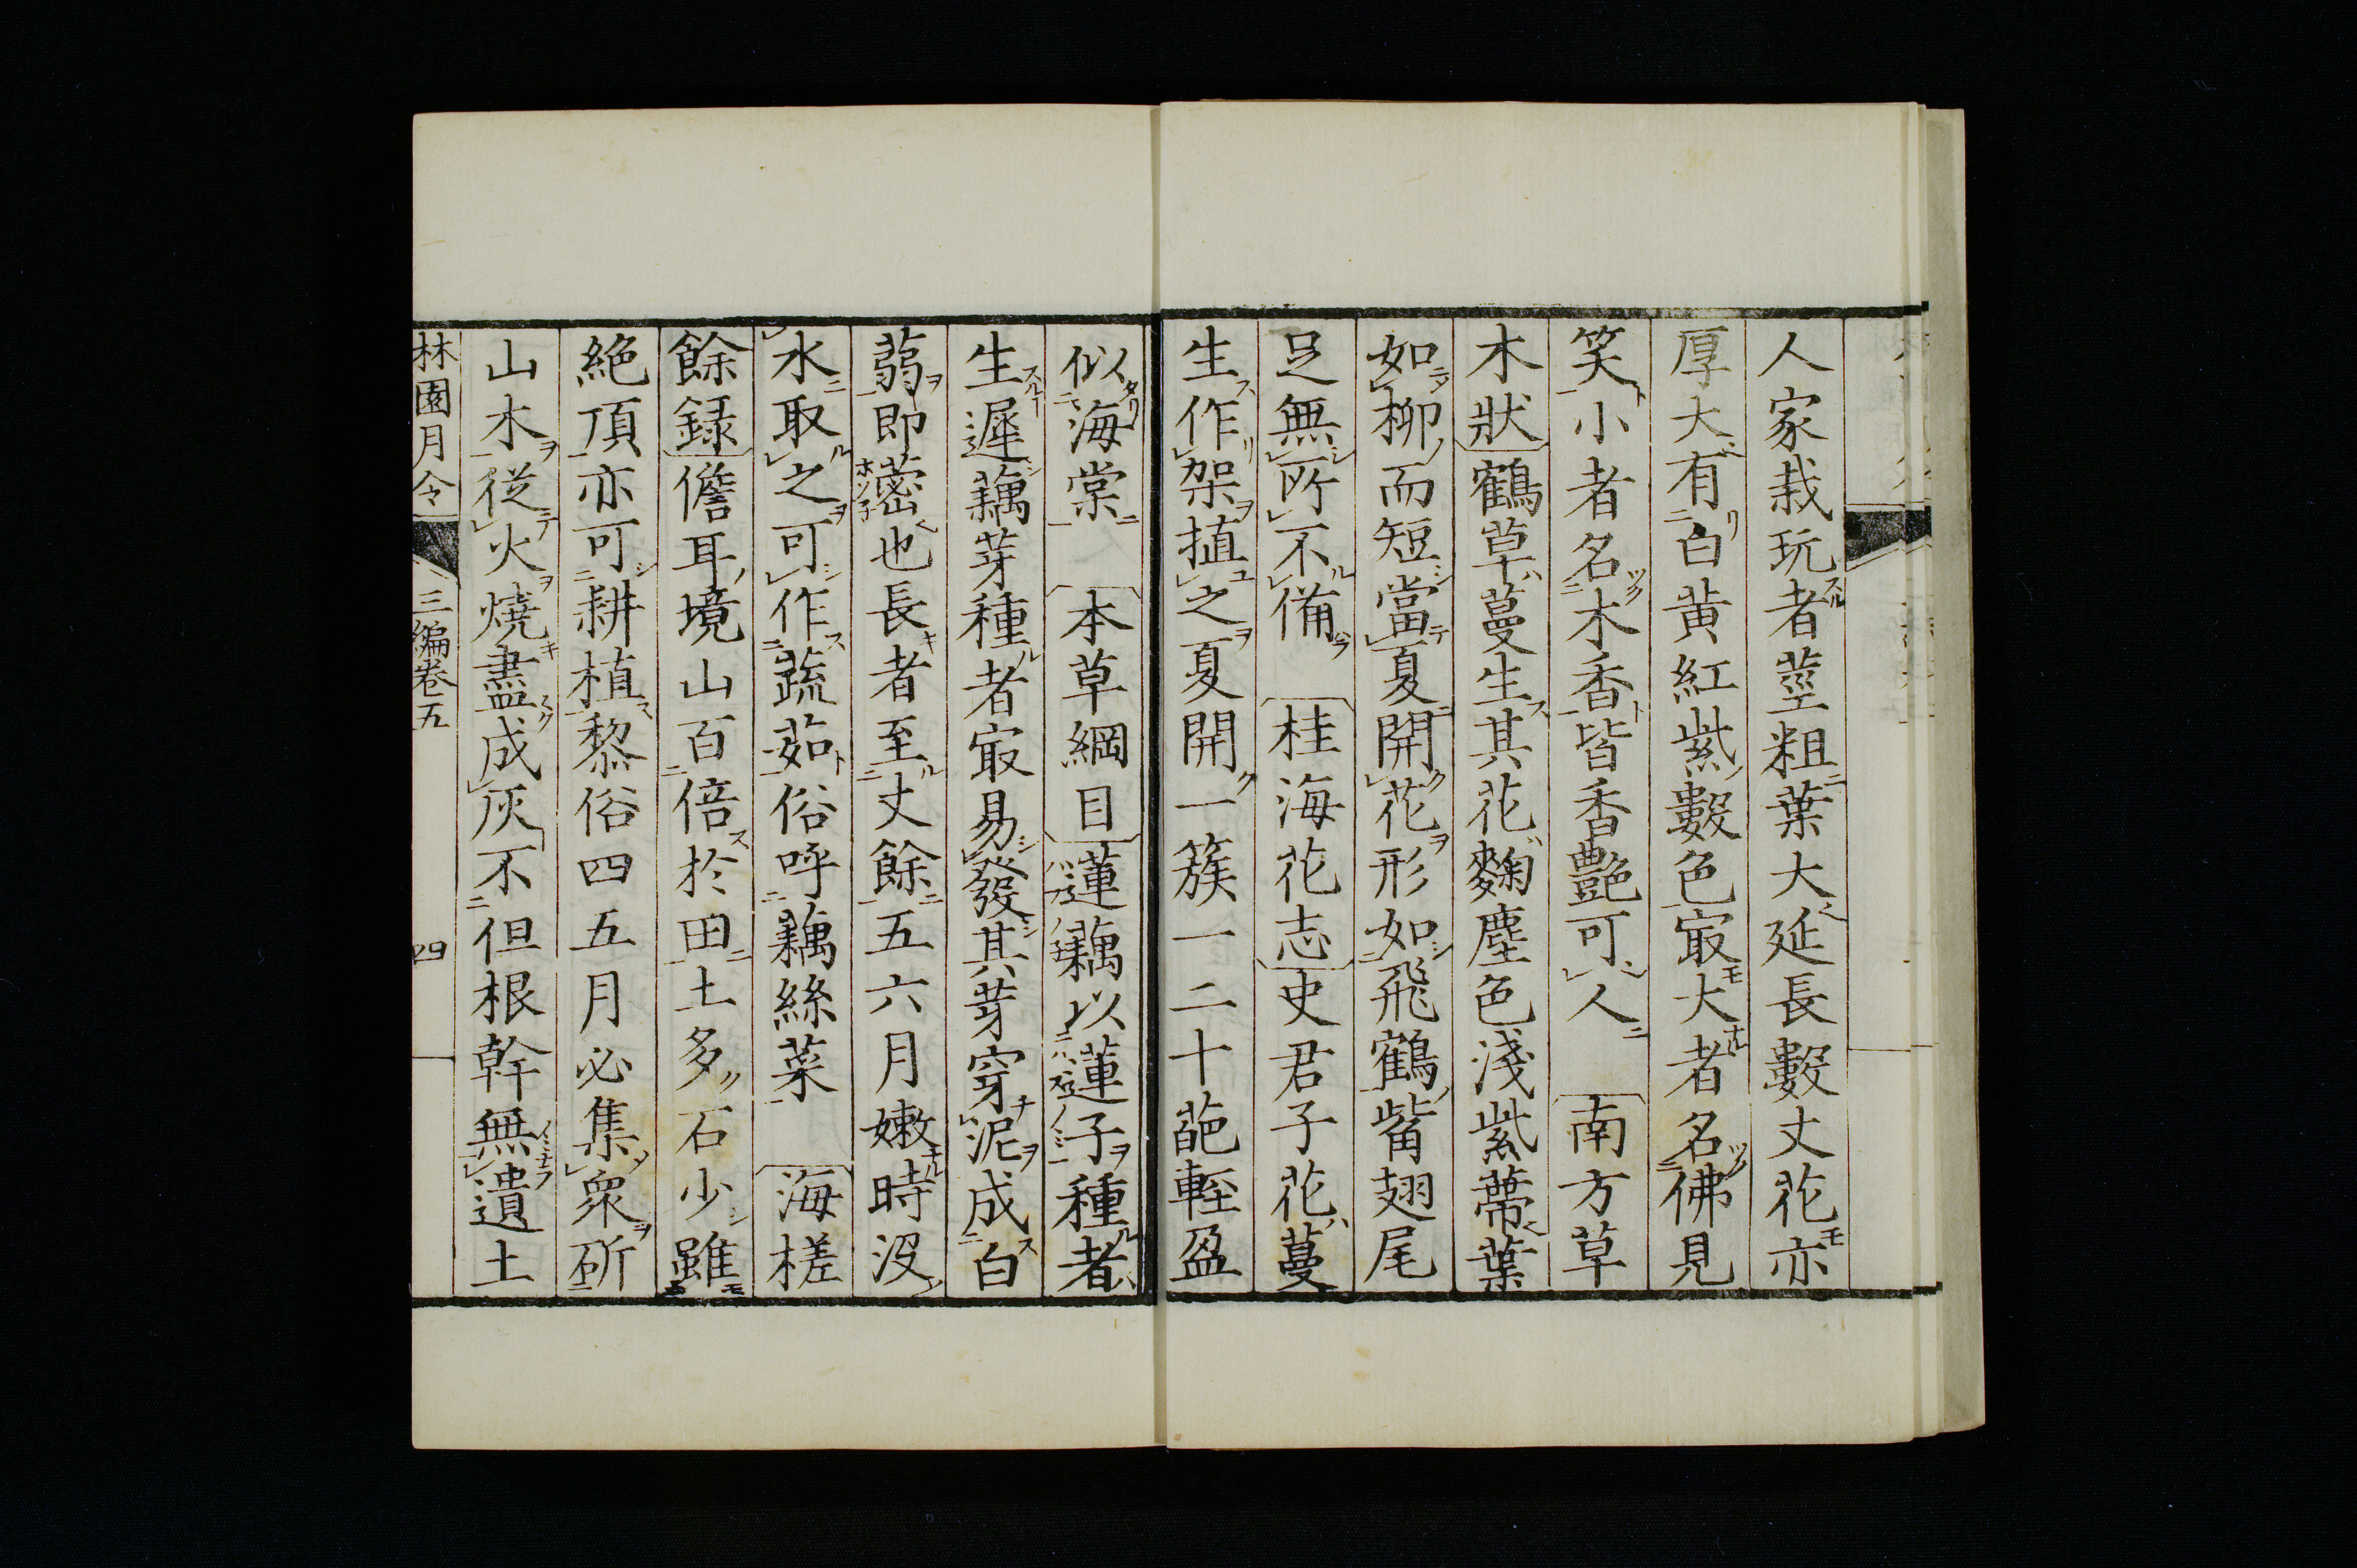 人家栽玩者莖粗葉大延長數丈花亦
厚大有白黄紅紫數色㝡大者名佛見
笑小者名木香皆香艷可人　南方草
木狀鶴草蔓生其花麴塵色淺紫蔕葉
如柳而短當夏開花形如飛鶴觜翅尾
足無所不備　桂海花志史君子花蔓
生作架植之夏開一簇一二十葩輕盈
似海棠　本草綱目蓮藕以蓮子種者
生遲藕芽種者㝡易發其芽穿泥成白
蒻即蔤也長者至丈餘五六月嫩時沒
水取之可作蔬茹俗呼藕絲菜　海槎
餘録儋耳境山百倍於田土多石少雖
絶頂亦可耕植黎俗四五月必集衆斫
山木從火燒盡成灰不但根幹無遺土
林園月令　三編卷五　四